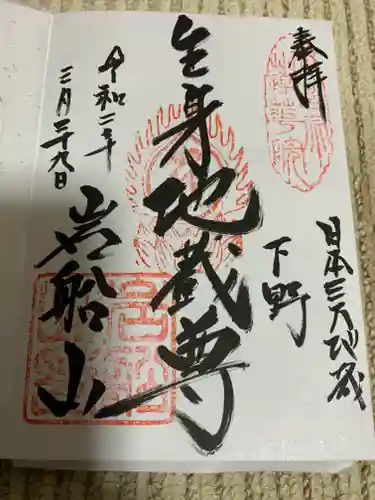 奉拝
日本三大地蔵
下野
生身地蔵尊
岩船山
令和二年
三月二十九日